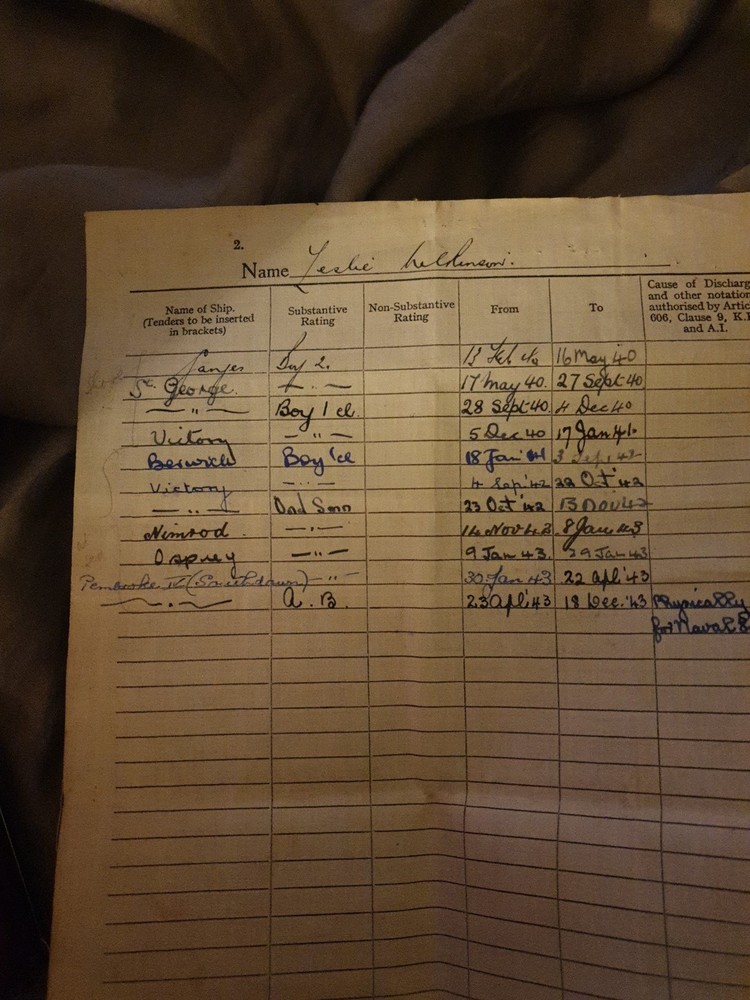 2.
Name Leslie Wilkinson.
Name of Ship. (Tenders to be inserted in brackets) Substantive Rating Non-Substantive Rating From To Cause of Discharg and other notation authorised by Artic 606, Clause 9, K. and A.I.
Ganges Boy 2. 13 Feb 40 16 May 40
St. George. — . — 17 May 40. 27 Sept 40
— " — Boy 1 cl 28 Sept 40 4 Dec 40
Victory — " — 5 Dec 40 17 Jan 41.
Berwick Boy 1cl 18 Jan 41 3 Sept 42
Victory — " — 4 Sep '42 22 Oct '42
— " — Ord Smn 23 Oct '42 13 Nov 42
Nimrod. — " — 14 Nov 42. 8 Jan 43
Osprey — " — 9 Jan 43. 29 Jan 43
Pembroke IV ( ) — " — 30 Jan 43 22 Apl '43
— " — A. B. 23 Apl '43 18 Dec. '43 Physically
for Naval S